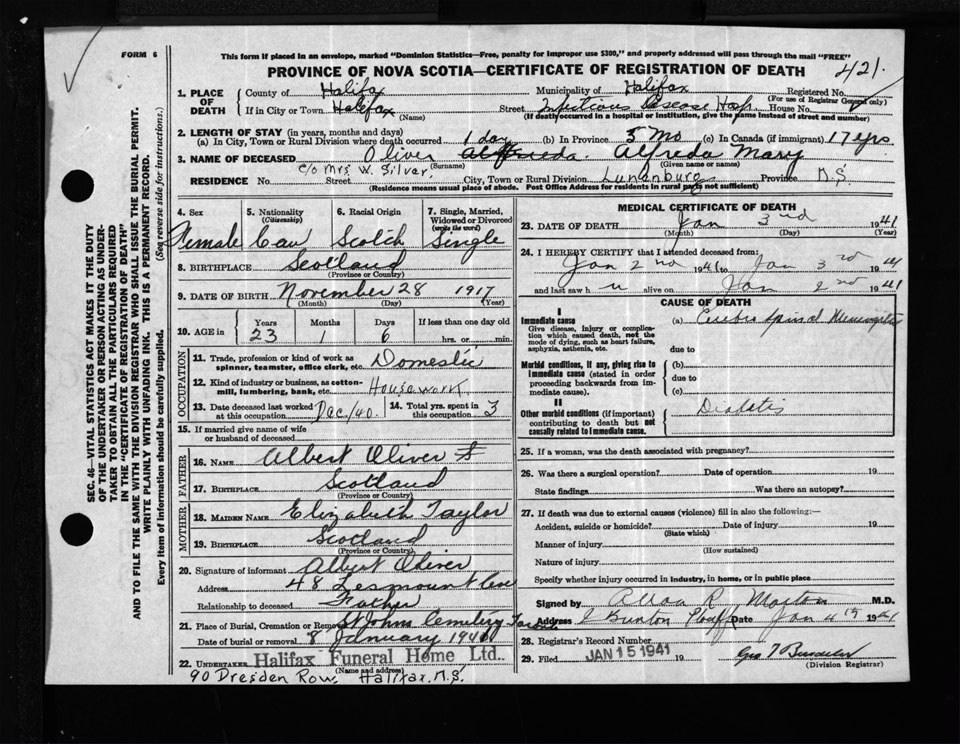 FORM 6
This form if placed in an envelope, marked "Dominion Statistics—Free, penalty for improper use $300," and properly addressed will pass through the mail "FREE"
PROVINCE OF NOVA SCOTIA—CERTIFICATE OF REGISTRATION OF DEATH 421
1. PLACE OF DEATH
County of Halifax Municipality of Halifax Registered No.
(For use of Registrar General only)
If in City or Town Halifax Street Infectious Disease Hosp. House No.
(Name) (If death occurred in a hospital or institution, give the name instead of street and number)
2. LENGTH OF STAY (in years, months and days)
(a) In City, Town or Rural Division where death occurred 1 day (b) In Province 5 Mo (c) In Canada (if immigrant) 17 yrs.
3. NAME OF DECEASED Oliver Alfreda Mary
(Surname) (Given name or names)
c/o Mrs. W. Silver,
RESIDENCE No. Street City, Town or Rural Division Lunenburg Province N.S.
(Residence means usual place of abode. Post Office Address for residents in rural parts not sufficient)
4. Sex Female
5. Nationality (Citizenship) Can
6. Racial Origin Scotch
7. Single, Married, Widowed or Divorced (write the word) Single
8. BIRTHPLACE Scotland
(Province or Country)
9. DATE OF BIRTH November 28 1917
(Month) (Day) (Year)
10. AGE in Years 23 Months 1 Days 6 If less than one day old hrs. or min.
OCCUPATION
11. Trade, profession or kind of work as spinner, teamster, office clerk, etc. Domestic
12. Kind of industry or business, as cotton-mill, lumbering, bank, etc. Housework
13. Date deceased last worked at this occupation Dec/40. 14. Total yrs. spent in this occupation 3
15. If married give name of wife or husband of deceased
FATHER
16. NAME Albert Oliver
17. BIRTHPLACE Scotland
(Province or Country)
MOTHER
18. MAIDEN NAME Elizabeth Taylor
19. BIRTHPLACE Scotland
(Province or Country)
20. Signature of informant Albert Oliver
Address 48
Relationship to deceased Father
21. Place of Burial, Cremation or Removal St Johns Cemetery
Date of burial or removal 8 January 194
22. UNDERTAKER Halifax Funeral Home Ltd..
(Name and address)
90 Dresden Row. Halifax. N.S.
MEDICAL CERTIFICATE OF DEATH
23. DATE OF DEATH Jan 3rd 1941
(Month) (Day) (Year)
24. I HEREBY CERTIFY that I attended deceased from
Jan 2nd 1941 to Jan 3rd 1941
and last saw h alive on Jan 2nd 1941
CAUSE OF DEATH
I
Immediate cause
Give disease, injury or complication which caused death, not the mode of dying, such as heart failure, asphyxia, asthenia, etc.
(a) Cerebro Spinal Meningitis
due to
Morbid conditions, if any, giving rise to immediate cause (stated in order proceeding backwards from immediate cause).
(b)
due to
(c)
II
Other morbid conditions (if important) contributing to death but not causally related to immediate cause.
Diabetis
25. If a woman, was the death associated with pregnancy?
26. Was there a surgical operation? Date of operation 19
State findings Was there an autopsy?
27. If death was due to external causes (violence) fill in also the following:—
Accident, suicide or homicide? Date of injury 19
(State which)
Manner of injury
(How sustained)
Nature of injury
Specify whether injury occurred in industry, in home, or in public place
Signed by Allan R Morton M.D.
Address Date Jan 4th 1941
28. Registrar's Record Number
29. Filed JAN 15 1941 19
(Division Registrar)
SEC. 46—VITAL STATISTICS ACT MAKES IT THE DUTY
OF THE UNDERTAKER OR PERSON ACTING AS UNDERTAKER TO OBTAIN ALL THE PARTICULARS REQUIRED
IN THE "CERTIFICATE OF REGISTRATION OF DEATH"
AND TO FILE THE SAME WITH THE DIVISION REGISTRAR WHO SHALL ISSUE THE BURIAL PERMIT.
WRITE PLAINLY WITH UNFADING INK. THIS IS A PERMANENT RECORD.
Every item of information should be carefully supplied. (See reverse side for instructions.)